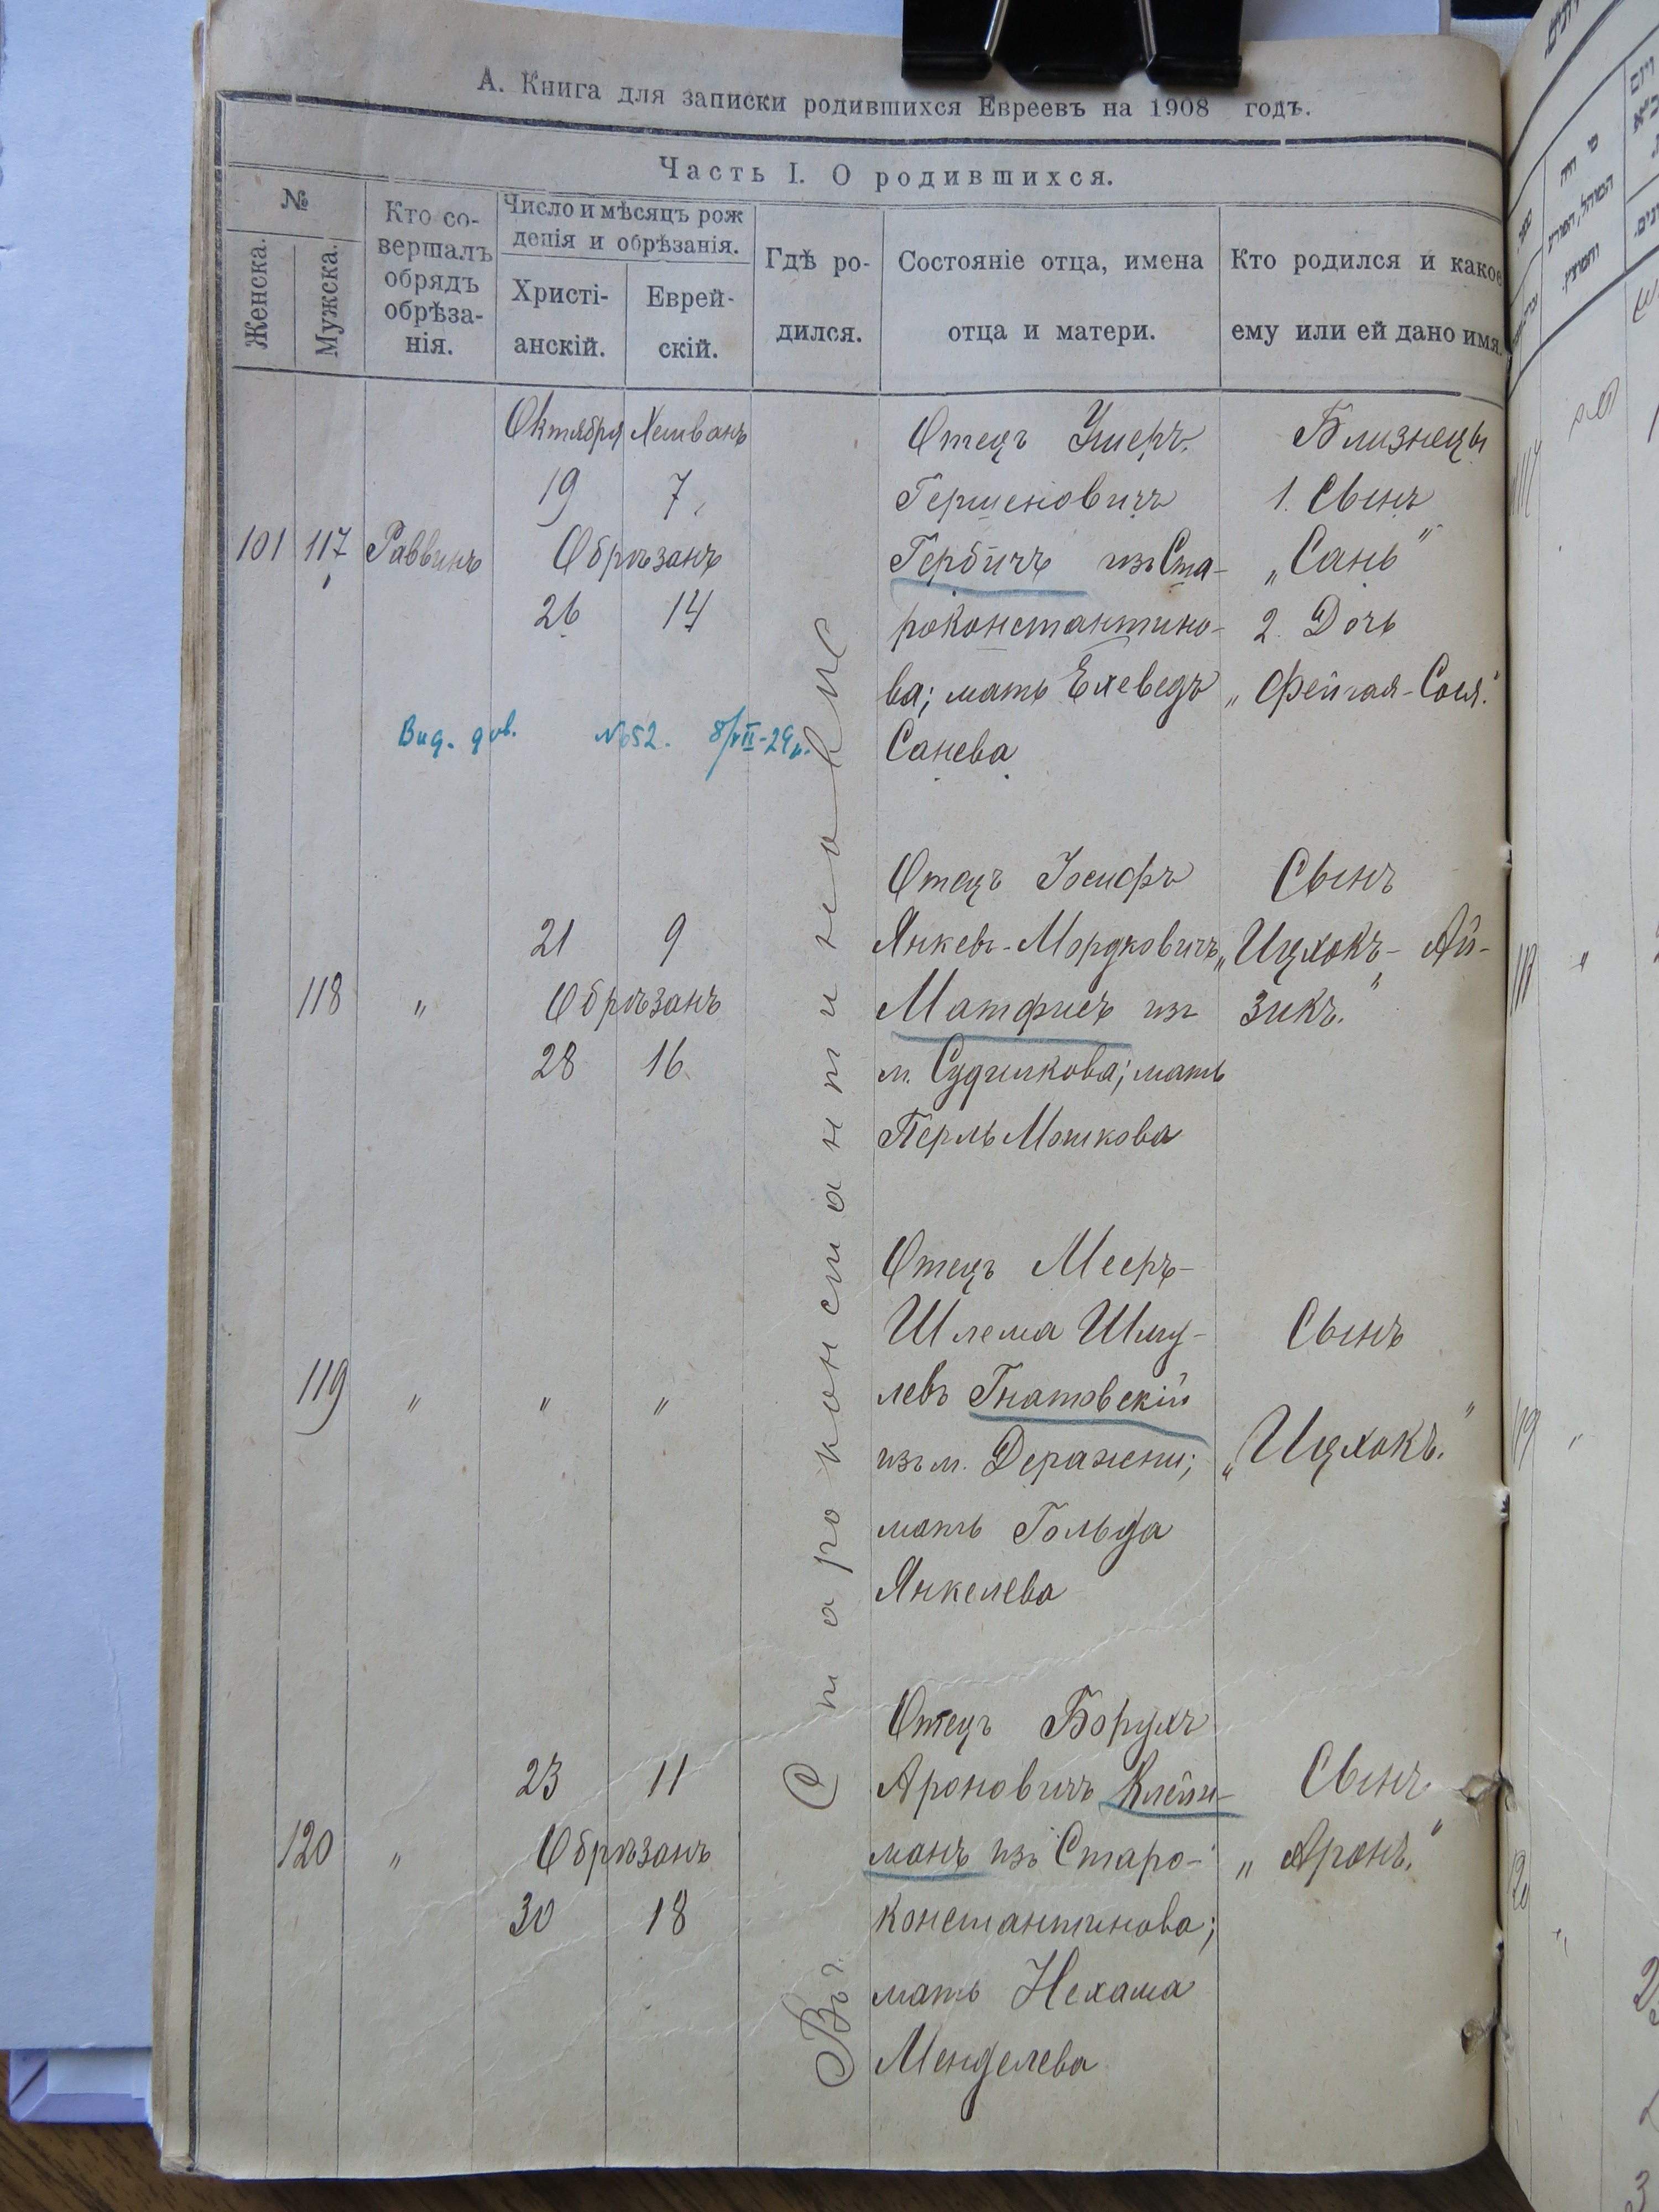 А. Книга для записки родившихся Евреевъ на 1908 годъ.
Часть I. О родившихся.
№
Женска.
Мужска.
Кто со-
вершалъ
обрядъ
обрѣза-
нія.
Число и мѣсяцъ рож
денія и обрѣзанія.
Христі-
анскій.
Еврей-
скій.
Гдѣ ро-
дился.
Состояніе отца, имена
отца и матери.
Кто родился и какое
ему или ей дано имя.
Въ г. Староконстантиновѣ
101 117 Раввинъ
Октября Хешванъ
19 7
Обрѣзанъ
26 14
Отецъ Ушеръ
Гершеновичъ
Гербичъ изъ Ста-
роконстантино-
ва; мать Ехеведъ
Санева
Близнецы
1. Сынъ
„Сань”
2. Дочь
„Фейгая-Сося.”
Вид. дов. №52. 8/VII-29р.
118 „
21 9
Обрѣзанъ
28 16
Отецъ Іосифъ
Янкев-Мордковичъ
Матфисъ изъ
м. Судилкова; мать
Перль Мошкова
Сынъ
„Ицхокъ-Ай-
зикъ.”
119 „ „ „
Отецъ Мееръ-
Шлема Шму-
левъ Гнатовскій
изъ м. Деражни;
мать Гольда
Янкелева
Сынъ
„Ицхокъ.”
120 „
23 11
Обрѣзанъ
30 18
Отецъ Борухъ
Ароновичъ Клейн-
манъ изъ Старо-
константинова;
мать Нехама
Менделева
Сынъ
„Аронъ.”